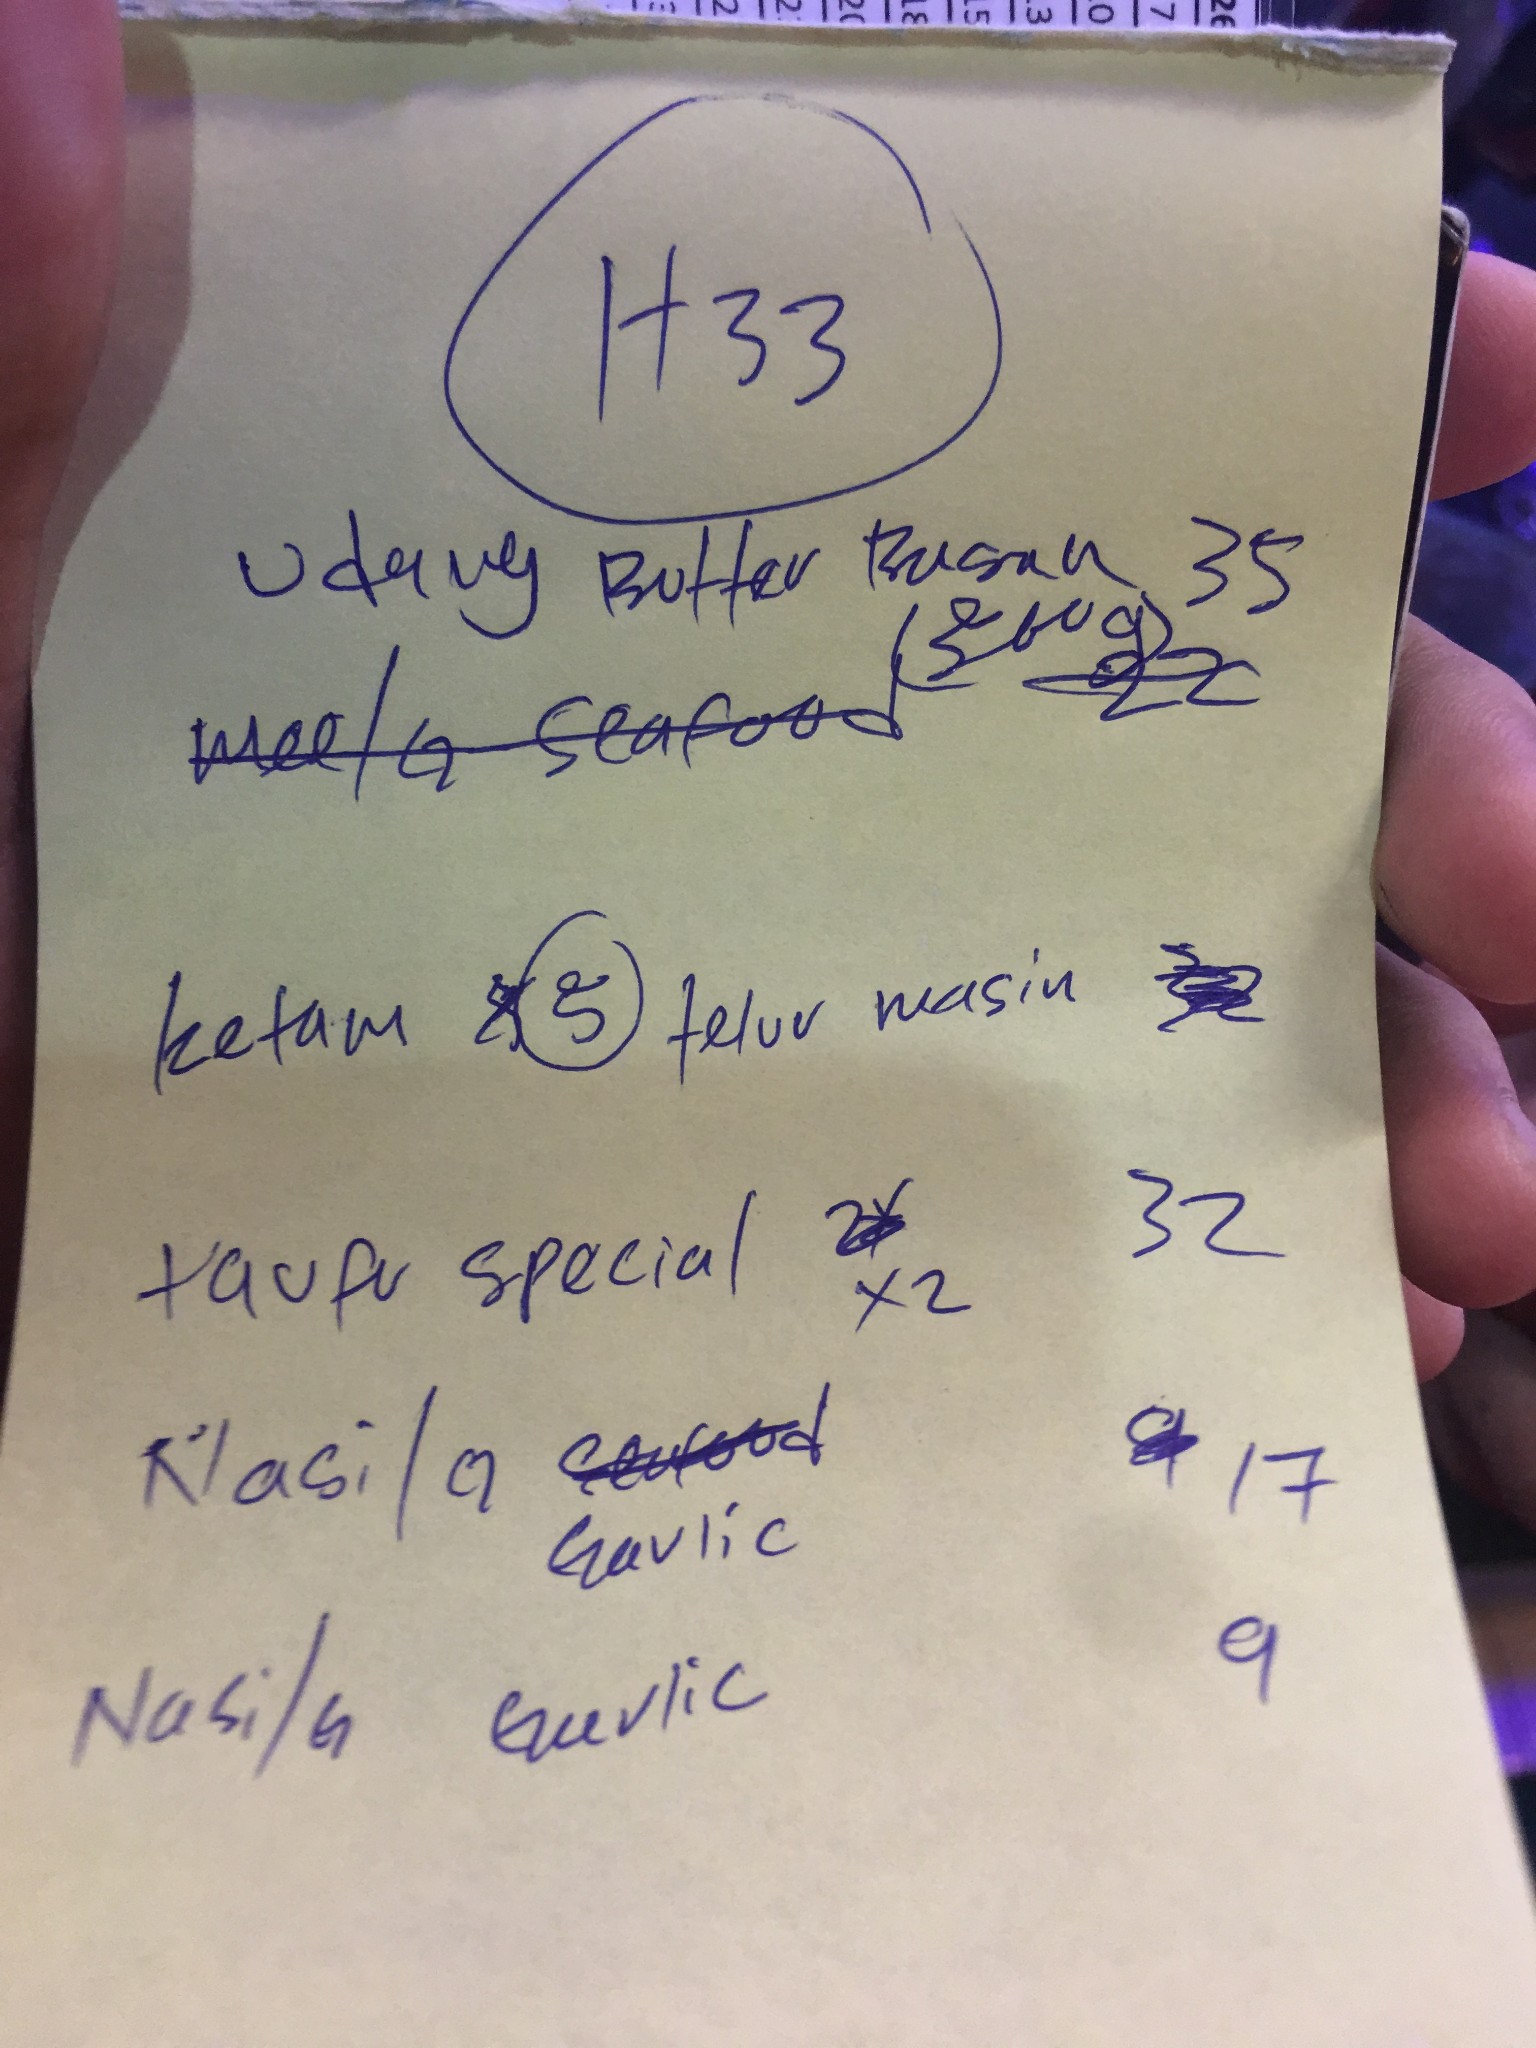 H33
Udang Butter Basah 35
(500g)
mee/G seafood 22
ketam 5 telur masin
taufu special x2 32
Nasi/G seafood 17
Garlic
Nasi/G Garlic 9